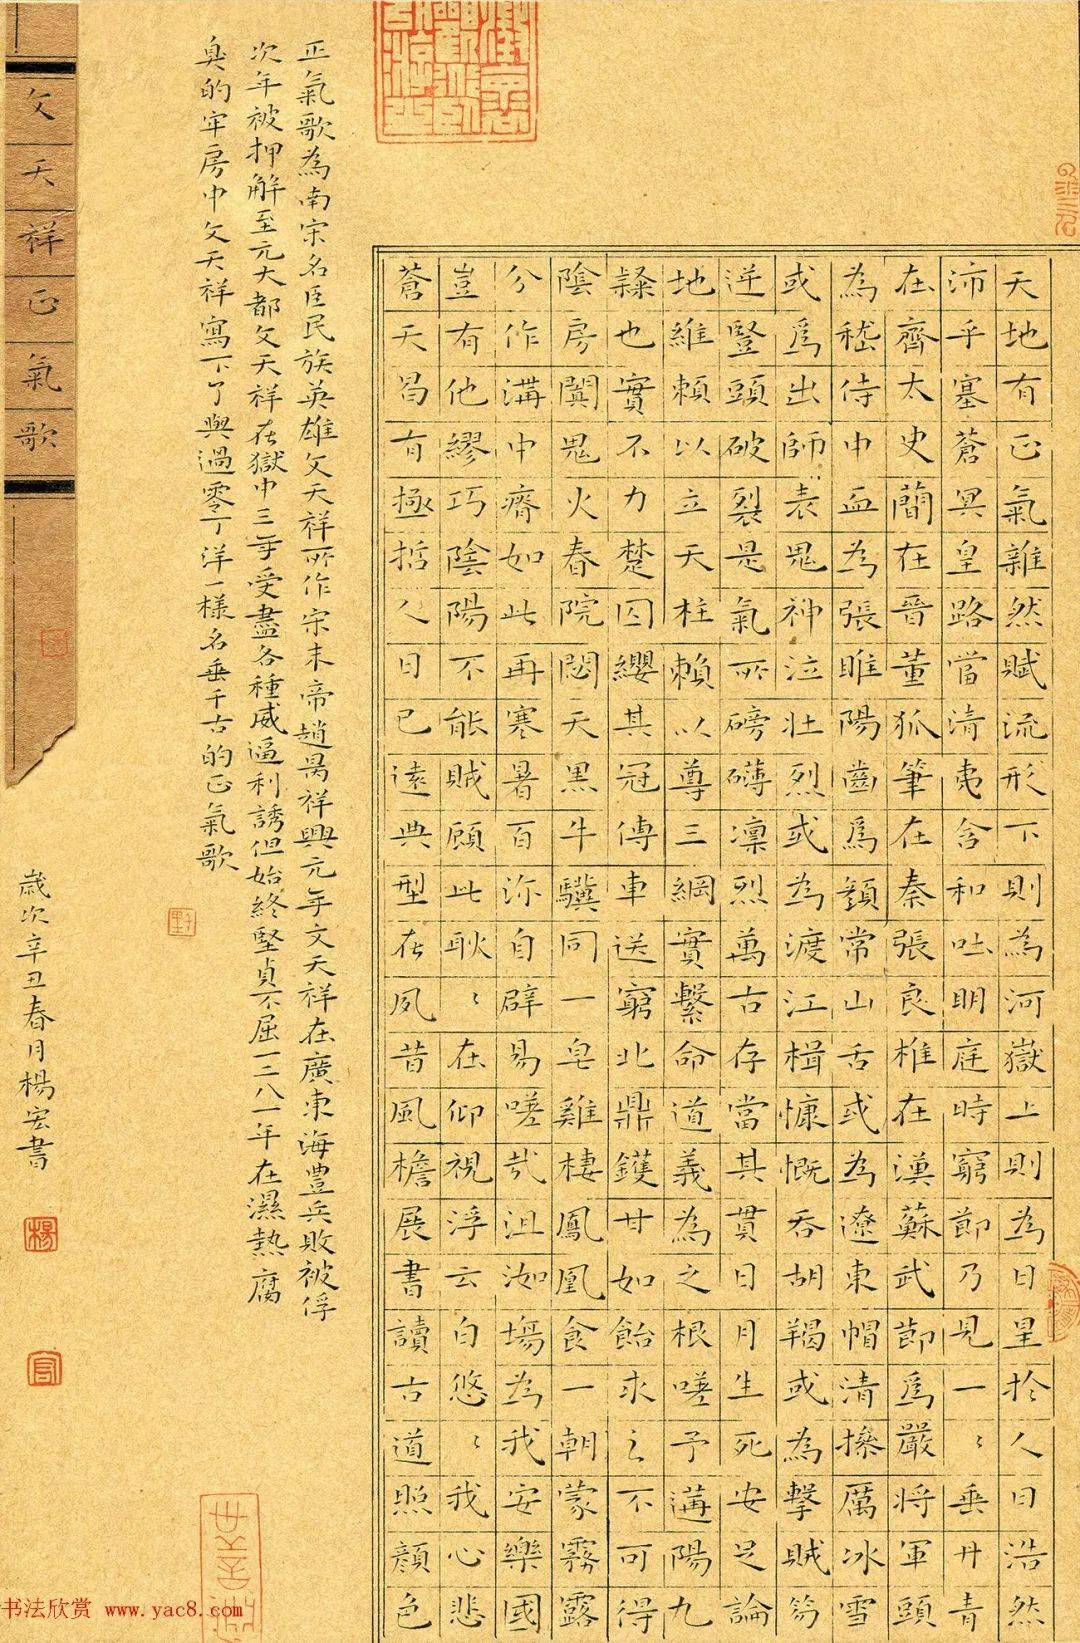 天地有正氣雜然賦流形下則為河嶽上則為日星於人曰浩然
沛乎塞蒼冥皇路當清夷含和吐明庭時窮節乃見一〻垂丹青
在齊太史簡在晉董狐筆在秦張良椎在漢蘇武節爲嚴將軍頭
為嵇侍中血為張睢陽齒爲顏常山舌或為遼東帽清操厲冰雪
或爲出師表鬼神泣壯烈或為渡江楫慷慨吞胡羯或為擊賊笏
逆豎頭破裂是氣所磅礴凜烈萬古存當其貫日月生死安足論
地維賴以立天柱賴以尊三綱實繫命道義為之根嗟予遘陽九
隸也實不力楚囚纓其冠傳車送窮北鼎鑊甘如飴求之不可得
陰房闃鬼火春院閟天黑牛驥同一皂雞棲鳳凰食一朝蒙霧露
分作溝中瘠如此再寒暑百沴自辟易嗟哉沮洳場為我安樂國
豈有他繆巧陰陽不能賊顧此耿〻在仰視浮云白悠〻我心悲
蒼天曷有極哲人日已遠典型在夙昔風檐展書讀古道照顏色
正氣歌為南宋名臣民族英雄文天祥所作宋末帝趙昺祥興元年文天祥在廣東海豐兵敗被俘
次年被押解至元大都文天祥在獄中三年受盡各種威逼利誘但始終堅貞不屈一二八一年在濕熱腐
臭的牢房中文天祥寫下了與過零丁洋一樣名垂千古的正氣歌
歲次辛丑春月楊宏書
文天祥正氣歌
书法欣赏 www.yac8.com